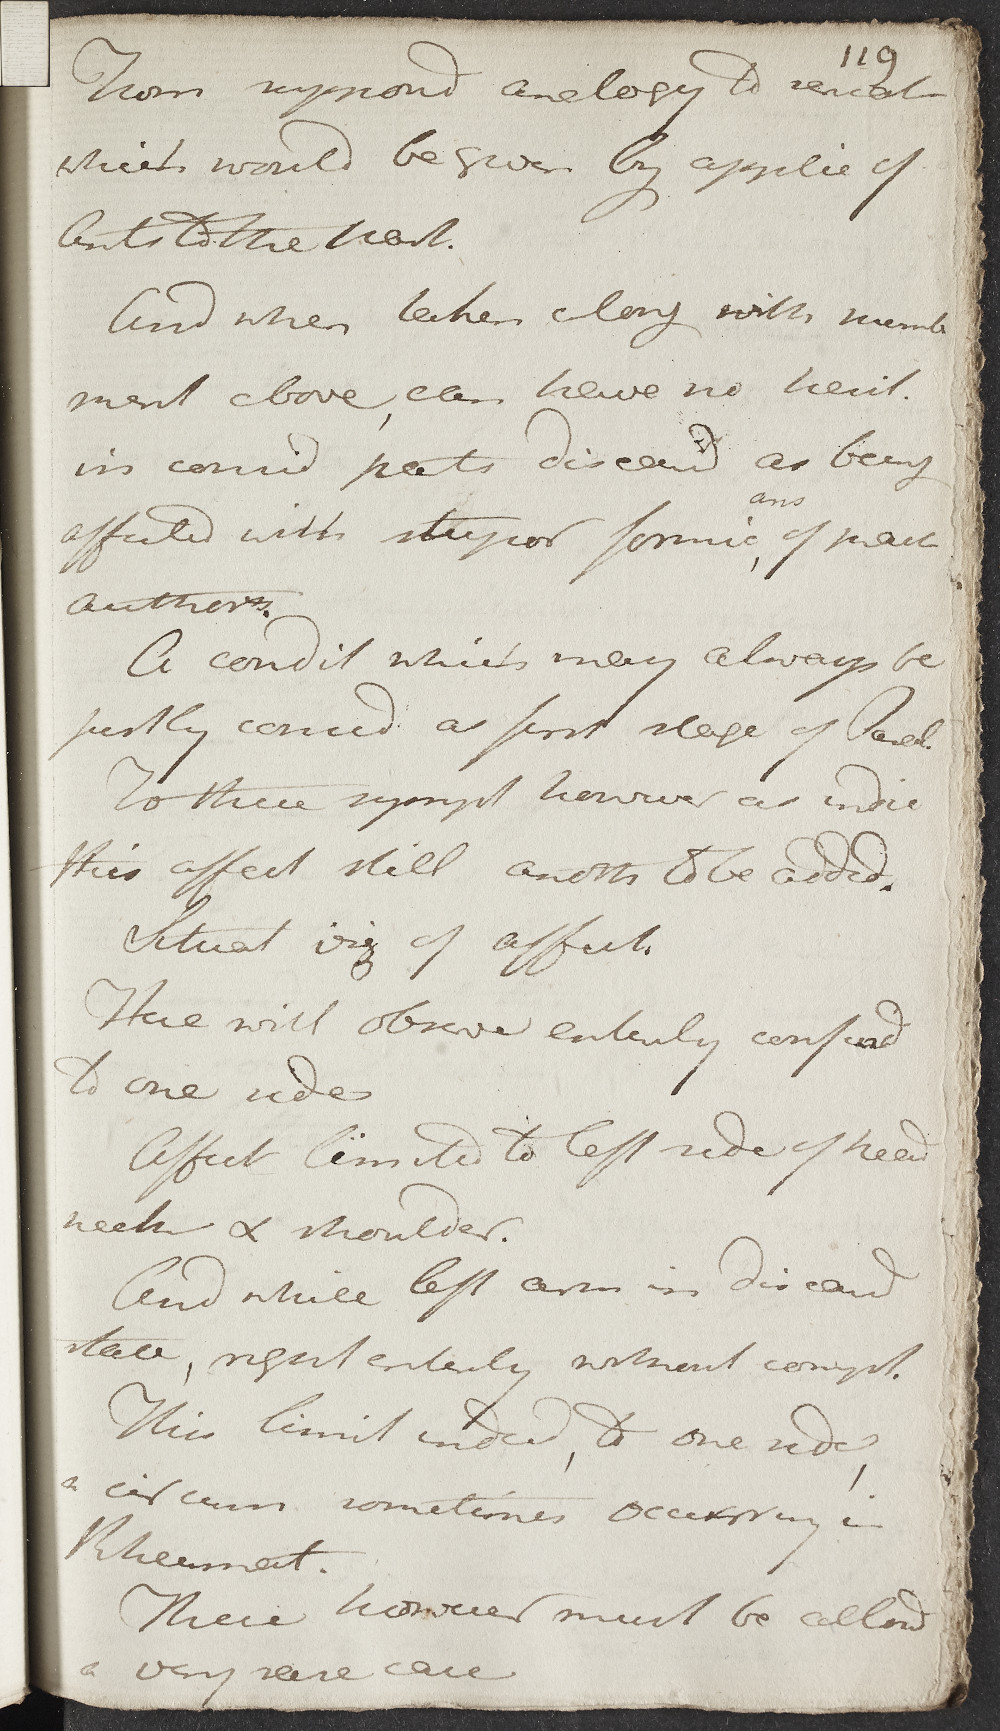 119
From suppond analogy to sensat
which would be given by applic of
Ants to the part.
And when taken along with numb
ment above, can have no hesit.
in consid parts diseasd as being
affected with stupor formic ans, of
authors.
A condit which may always be
justly consid as first stage of Paral.
To these sympt however as indic
this affect still anoth to be added.
Situat viz of affect.
Here will observe entirely confind
to one side
Affect limited to left side of head
neck & shoulder.
And while left arm in diseasd
state, right entirely without compt.
This limit indeed, to one side,
a circum sometimes occurring in
Rheumat.
There however must be allowd
a very rare case